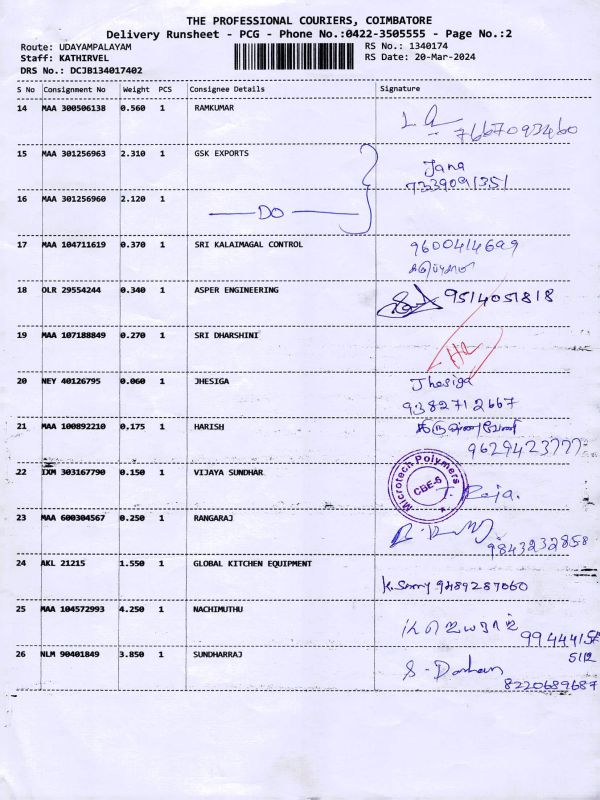 THE PROFESSIONAL COURIERS, COIMBATORE
Delivery Runsheet - PCG - Phone No.:0422-3505555 - Page No.:2
Route: UDAYAMPALAYAM RS No.: 1340174
Staff: KATHIRVEL RS Date: 20-Mar-2024
DRS No.: DCJB134017402
S No Consignment No Weight PCS Consignee Details Signature
14 MAA 300506138 0.560 1 RAMKUMAR
7667093460
15 MAA 301256963 2.310 1 GSK EXPORTS Jana
7339091351
16 MAA 301256960 2.120 1
DO
17 MAA 104711619 0.370 1 SRI KALAIMAGAL CONTROL 9600414699
18 OLR 29554244 0.340 1 ASPER ENGINEERING 9514051818
19 MAA 107188849 0.270 1 SRI DHARSHINI
20 NEY 40126795 0.060 1 JHESIGA Jhesiga
9382712667
21 MAA 100892210 0.175 1 HARISH
9629423777
22 IXM 303167790 0.150 1 VIJAYA SUNDHAR Microtech Polymers CBE-6
T. Raja.
23 MAA 600304567 0.250 1 RANGARAJ
9843232858
24 AKL 21215 1.550 1 GLOBAL KITCHEN EQUIPMENT
9489287060
25 MAA 104572993 4.250 1 NACHIMUTHU
26 NLM 90401849 3.850 1 SUNDHARRAJ
8220689687